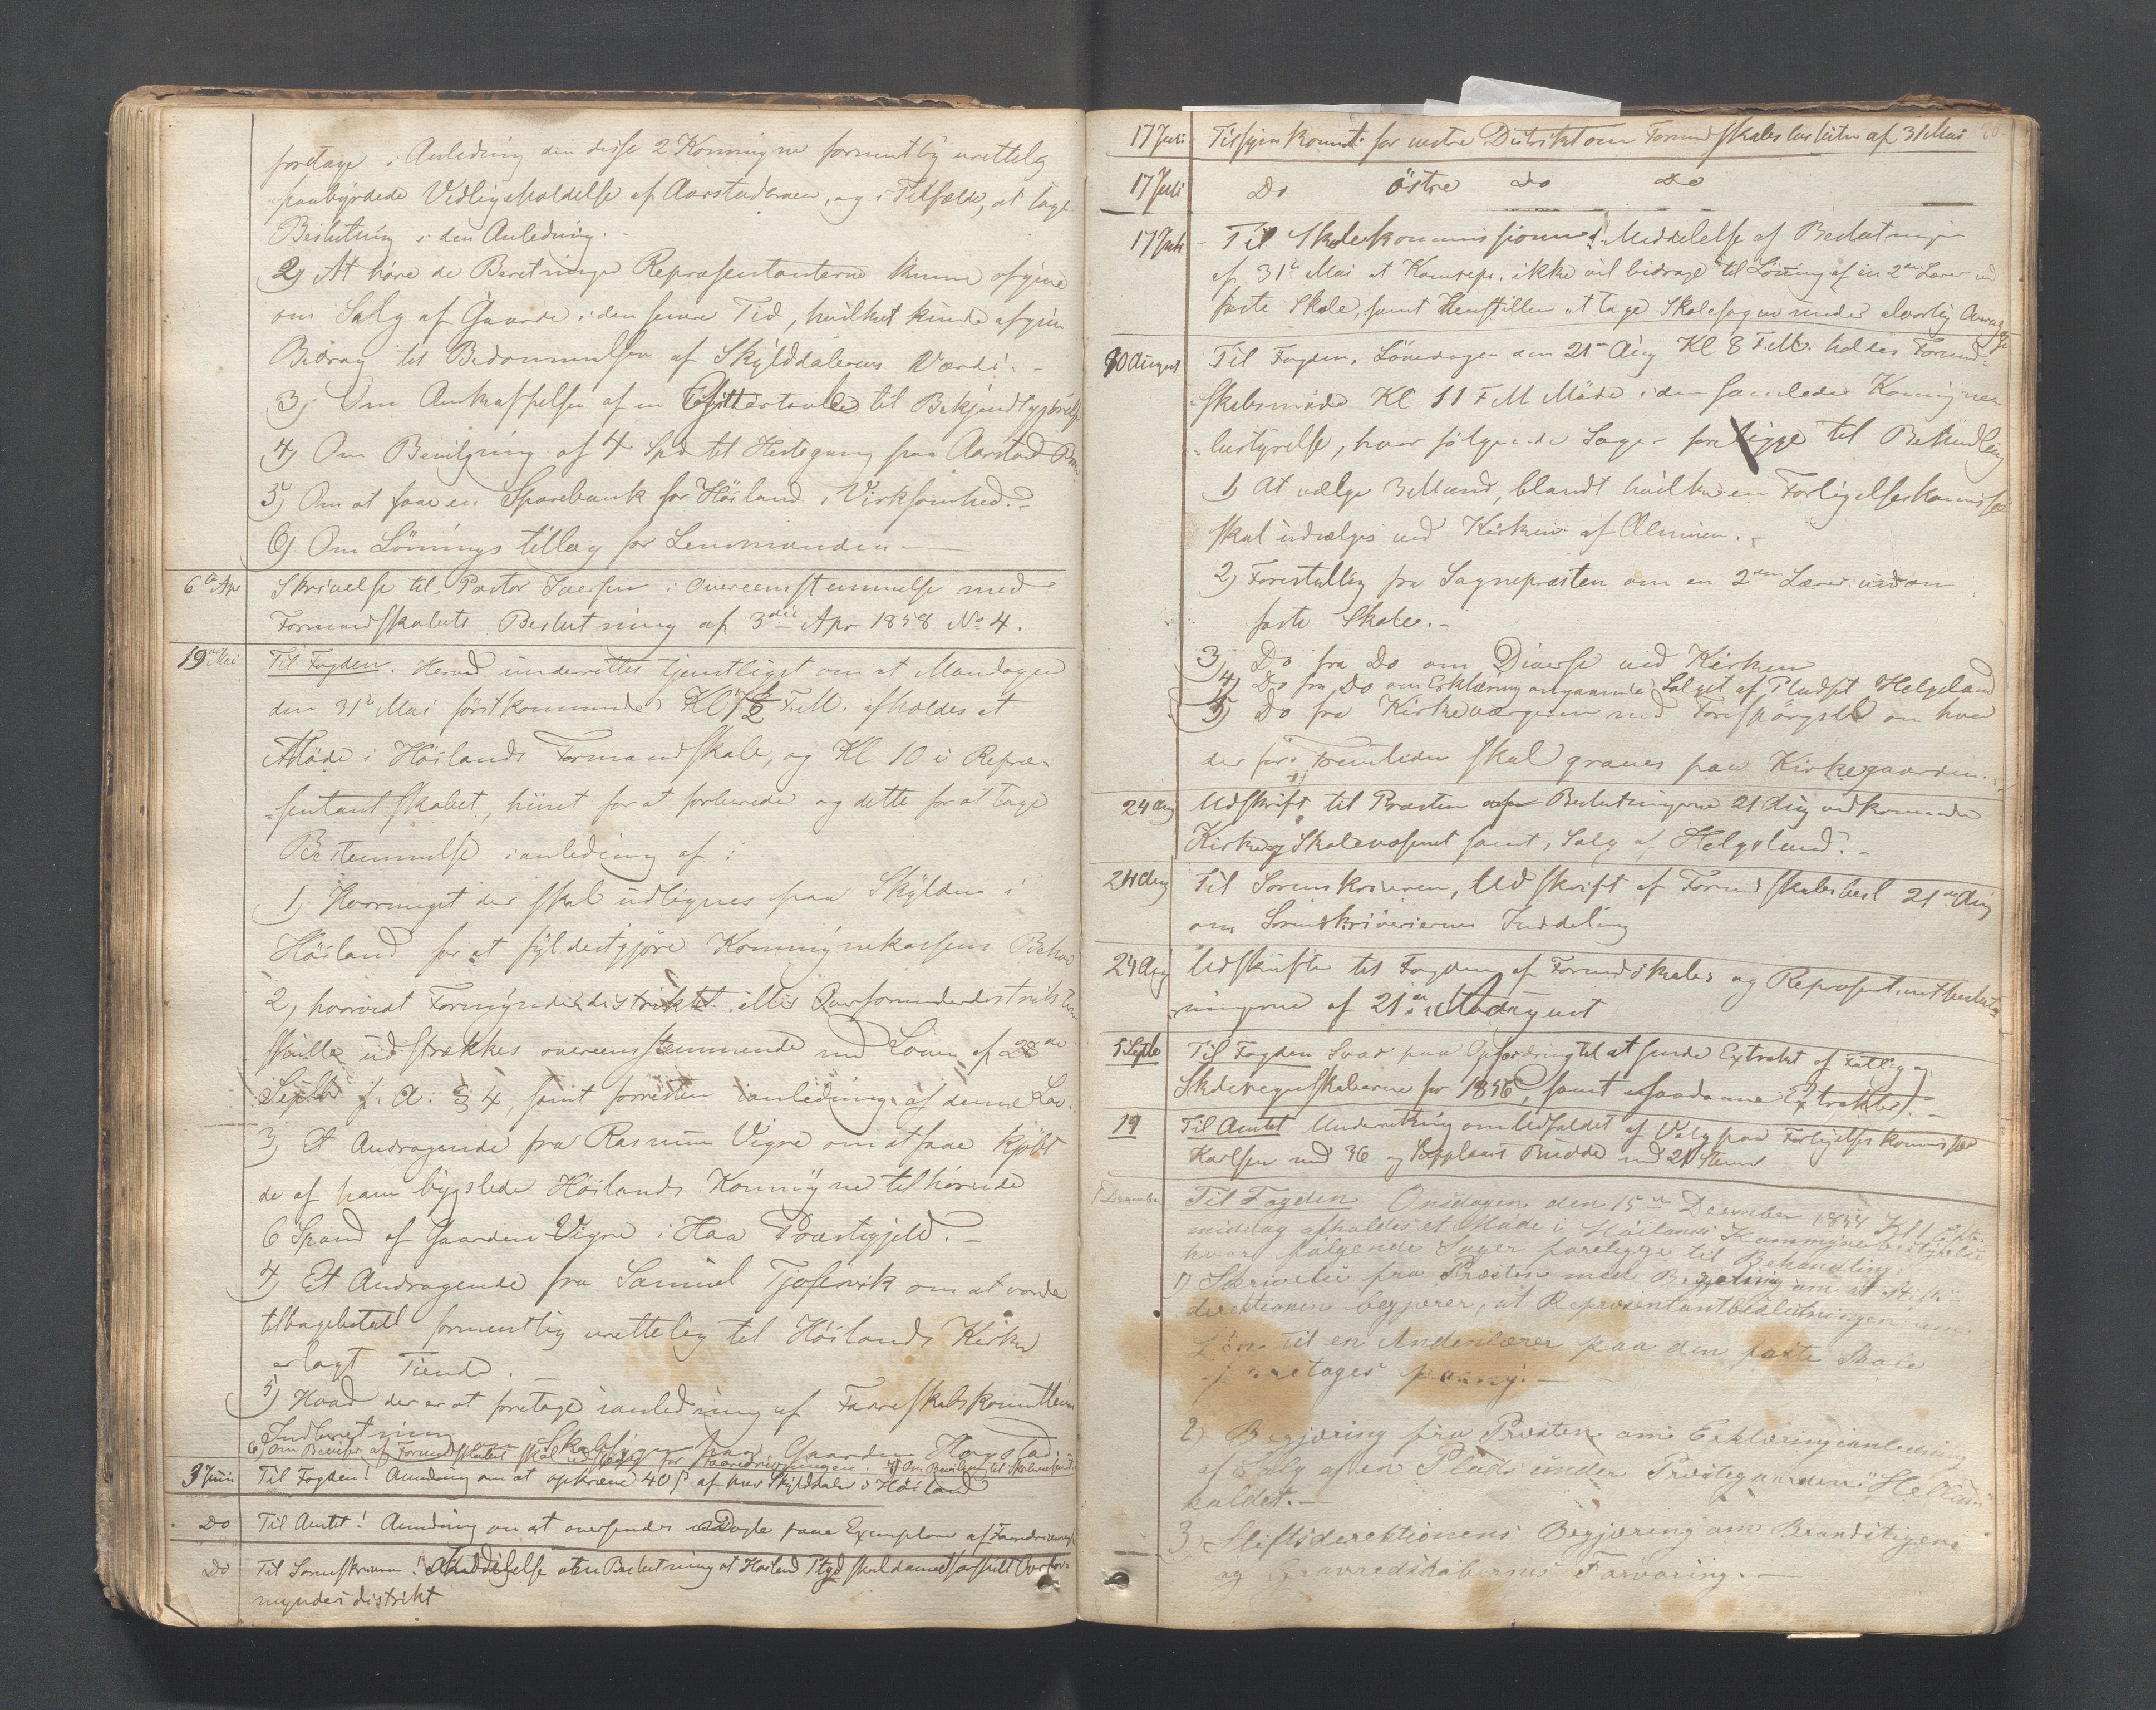 foretage i Anledning den disse 2 Kommuner formentlig urettelig
paabyrdede Vedligeholdelse af Aarstadbroen, og i Tilfælde, at tage
Beslutning i den Anledning. -
2) At høre de Beretninger Repræsentanterne kunne afgive
om Salg af Gaarde i den senere Tid, hvilket kunde afgive
Bidrag til Bedømmelsen af Skylddalerens Værdi. -
3) Om Anskaffelse af en til Bekjendtgjørelse
4) Om Bevilgning af 4 Spd til Hestegang paa Aarstad Bro
5) Om at faae en Sparebank for Höiland i Virksomhed. -
6) Om Lönnings tillæg for Lensmanden -
6te Apr Skrivelse til Pastor Iversen i Overeensstemmelse med
Formandskabets Beslutning af 3die Apr 1858 No 4.
19 Mai Til Fogden. Herved underrettes tjenstligst om at Mandagen
den 31te Mai förstkommende Kl 7½ F.M. afholdes et
Möde i Höilands Formandskab, og Kl 10 i Repræ-
sentantskabet, hiint for at forberede og dette for at tage
Bestemmelse i anledning af:
1) Hvormeget der skal udlignes paa Skylden i
Höiland for at fyldestgjöre Kommunekassens Behov
2, hvorvidt Formynderdistriktet eller Overformynderdistriktet
skulle udstrækkes overeensstemmende med Loven af 28de
Septbr f. A. § 4, samt forresten i anledning af denne Lov.
3) Et Andragende fra Rasmus Vigre om at faae kjöbt
de af ham bygslede Höilands Kommune tilhörende
6 Spand af Gaarden Vigre i Haa Præstegjeld. -
4) Et Andragende fra Samuel Tjosevik om at vorde
tilbagebetalt formentlig urettelig til Höilands Kirke
erlagt Tiende. -
5) Hvad der er at foretage i anledning af Farveskabskomitteens
Indberetning om Skabsyge paa Gaarden Hogstad
6) Om Beviser af Formandskabet skal udstedes for Faaredrivningen. 7) Om Bevilgn. til Skolevæsenet
3 Juni Til Fogden! Anmodning om at opkræve 40 ß af hver Skylddaler i Höiland
Do Til Amtet! Anmodning om at oversendes nogle faae Exemplarer af
Do Til Sorenskriveren! Meddelelse om Beslutning at Höiland Ptgd skal danne særskilt Overfor-
mynderdistrikt
17 Juli Tilsynskomit for vestre Distrikt om Formandskabsbeslutn af 31 Mai
17 Juli Do östre do do
17 Juli - Til Skolekommissionen! Meddelelse af Beslutningen
af 31te Mai at Komrepr. ikke vil bidrage til Lönning af en 2den Lærer ved
faste Skole, samt Henstillen at tage Skolesagen under alvorlig Overveielse
10 August Til Fogden. Löverdagen den 21de Aug Kl 8 F.M. holdes Formand-
skabsmöde Kl 11 F M Möde i den samlede Kommune-
bestyrelse, hvor fölgende Sager foreligge til Behandling
1) At vælge 3 Mænd, blandt hvilke en Forligelseskommissær
skal udvælges ved Kirken af Almuen. -
2) Forestilling fra Sognepræsten om en 2den Lærer ved en
faste Skole. -
3) Do fra Do om Diverse ved Kirken
4) Do fra Do om Erklæring angaaende Salget af Pladset Helgeland
5) Do fra Kirkeværgeren med Forespörgsel om hvor
der for Fremtiden skal graves paa Kirkegaarden.
24 Aug Udskrift til Præsten af Beslutningerne 21 Aug vedkommende
Kirke og Skolevæsenet samt, Salg af Helgeland. -
24 Aug Til Sorenskriveren, Udskrift af Formandskabsbesl 21de Aug
om Sorenskriveriernes Inddeling
24 Aug Udskrifter til Fogden af Formandskabs og Repræsentantbeslut-
ningerne af 21de August
5 Septb Til Fogden Svar paa Opfordring til at sende Extrakt af Fattig og
Skoleregnskaberne for 1856, samt saadanne Extrakter. -
19 Til Amtet Underretning om Udfaldet af Valg paa Forligelseskommissær
Karlsen med 36 og Budde med 21 Stemmer
1 December Til Fogden Onsdagen den 15de December 1858 Kl 1 Efter-
middag afholdes et Möde i Höilands Kommunebestyrelse
hvor fölgende Sager forelegge til Behandling:
1) Skrivelse fra Præsten med Begjæring om at Stifts-
direktionen begjærer, at Repræsentantbeslutningen om
Lön til en Andenlærer paa den faste Skole
foretages paany. -
2) Begjæring fra Præsten om Erklæring i anledning
af Salg af en Plads under Præstegaarden "Helland"
kaldet. -
3) Stiftsdirektionens Begjæring om Brandstigene
og Gravredskabernes Forvaring. -